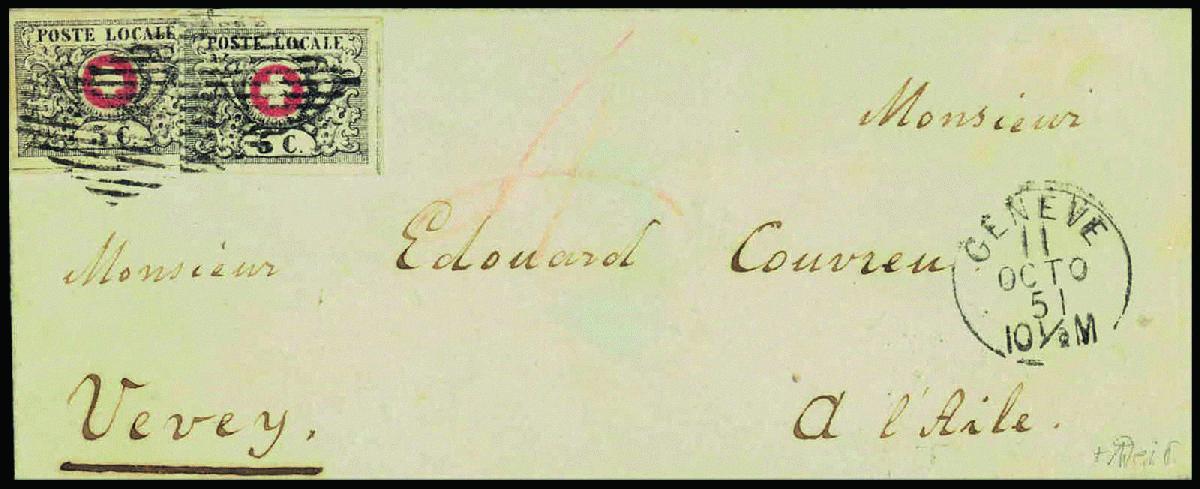 POSTE LOCALE POSTE LOCALE
5 C. 5 C.
Monsieur
Monsieur Edouard Couvreu
Vevey. A l'Aile.
GENEVE
11
OCTO
51
10½M